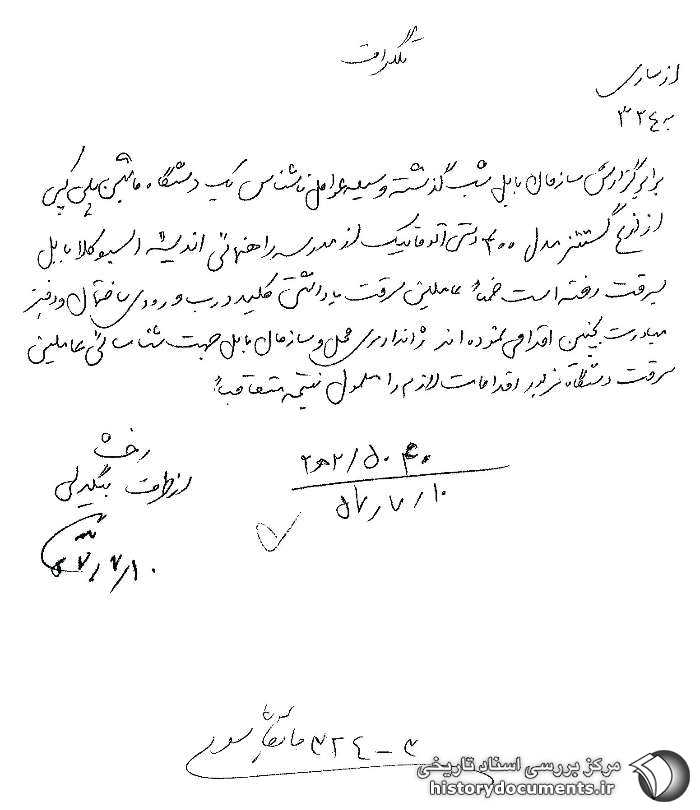 تلگراف
از ساری
به ۳۲٤
برابر گزارش سازمان بابل شب گذشته وسیله عوامل ناشناس یک دستگاه ماشین پلی کپی
از نوع گستتنر مدل ۴۰۰ دستی اتوماتیک از مدرسه راهنمائی اندیشه امیرکلا بابل
بسرقت رفته است ضمناً عاملین سرقت با داشتن کلید درب ورودی ساختمان و دفتر
مبادرت بچنین اقدامی نموده اند ژاندارمری محل و سازمان بابل جهت شناسائی عاملین
سرقت دستگاه مزبور اقدامات لازم را معمول نتیجه متعاقباً
۵۰۴۰/ ۲ﻫ۲
۵۷٫۷٫۱۰
از طرف بیگدلی
۵۷٫۷٫۱۰
۳۲٤ - ۳
مرکز بررسی اسناد تاریخی
historydocuments.ir